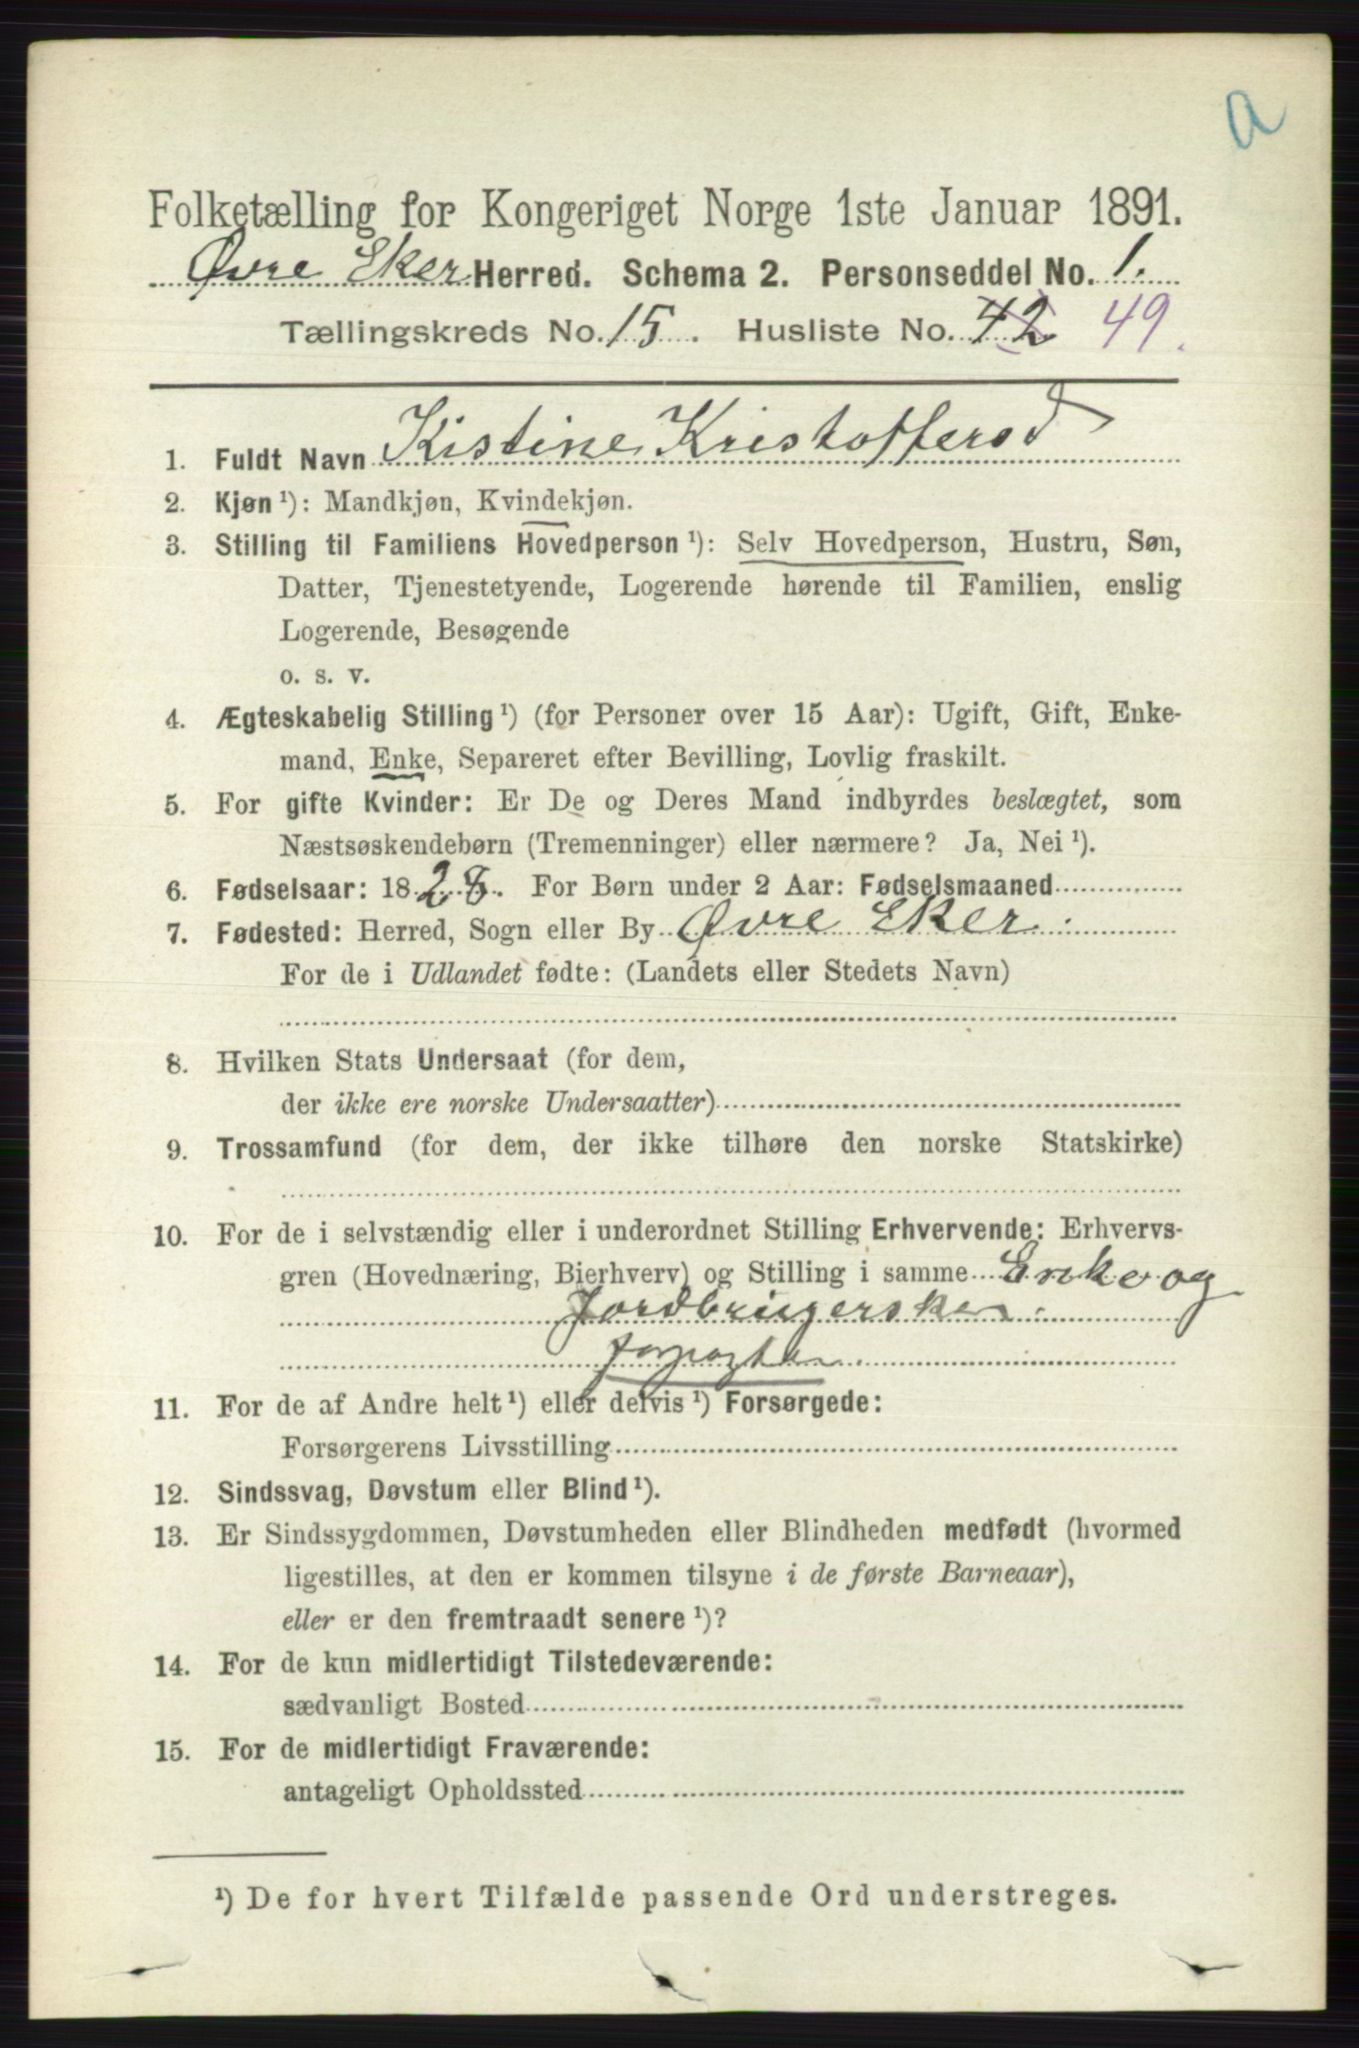 a
Folketælling for Kongeriget Norge 1ste Januar 1891.
Øvre Eker Herred. Schema 2. Personseddel No. 1.
Tællingskreds No. 15. Husliste No. 42 49.
1. Fuldt Navn Kistine Kristoffersd
2. Kjøn ¹): Mandkjøn, Kvindekjøn.
3. Stilling til Familiens Hovedperson ¹): Selv Hovedperson, Hustru, Søn,
Datter, Tjenestetyende, Logerende hørende til Familien, enslig
Logerende, Besøgende
o. s. v.
4. Ægteskabelig Stilling ¹) (for Personer over 15 Aar): Ugift, Gift, Enke-
mand, Enke, Separeret efter Bevilling, Lovlig fraskilt.
5. For gifte Kvinder: Er De og Deres Mand indbyrdes beslægtet, som
Næstsøskendebørn (Tremenninger) eller nærmere? Ja, Nei ¹).
6. Fødselsaar: 1828. For Børn under 2 Aar: Fødselsmaaned
7. Fødested: Herred, Sogn eller By Øvre Eker.
For de i Udlandet fødte: (Landets eller Stedets Navn)
8. Hvilken Stats Undersaat (for dem,
der ikke ere norske Undersaatter)
9. Trossamfund (for dem, der ikke tilhøre den norske Statskirke)
10. For de i selvstændig eller i underordnet Stilling Erhvervende: Erhvervs-
gren (Hovednæring, Bierhverv) og Stilling i samme Enke og
Jordbrugerske.
11. For de af Andre helt ¹) eller delvis ¹) Forsørgede:
Forsørgerens Livsstilling
12. Sindssvag, Døvstum eller Blind ¹).
13. Er Sindssygdommen, Døvstumheden eller Blindheden medfødt (hvormed
ligestilles, at den er kommen tilsyne i de første Barneaar),
eller er den fremtraadt senere ¹)?
14. For de kun midlertidigt Tilstedeværende:
sædvanligt Bosted
15. For de midlertidigt Fraværende:
antageligt Opholdssted
¹) De for hvert Tilfælde passende Ord understreges.